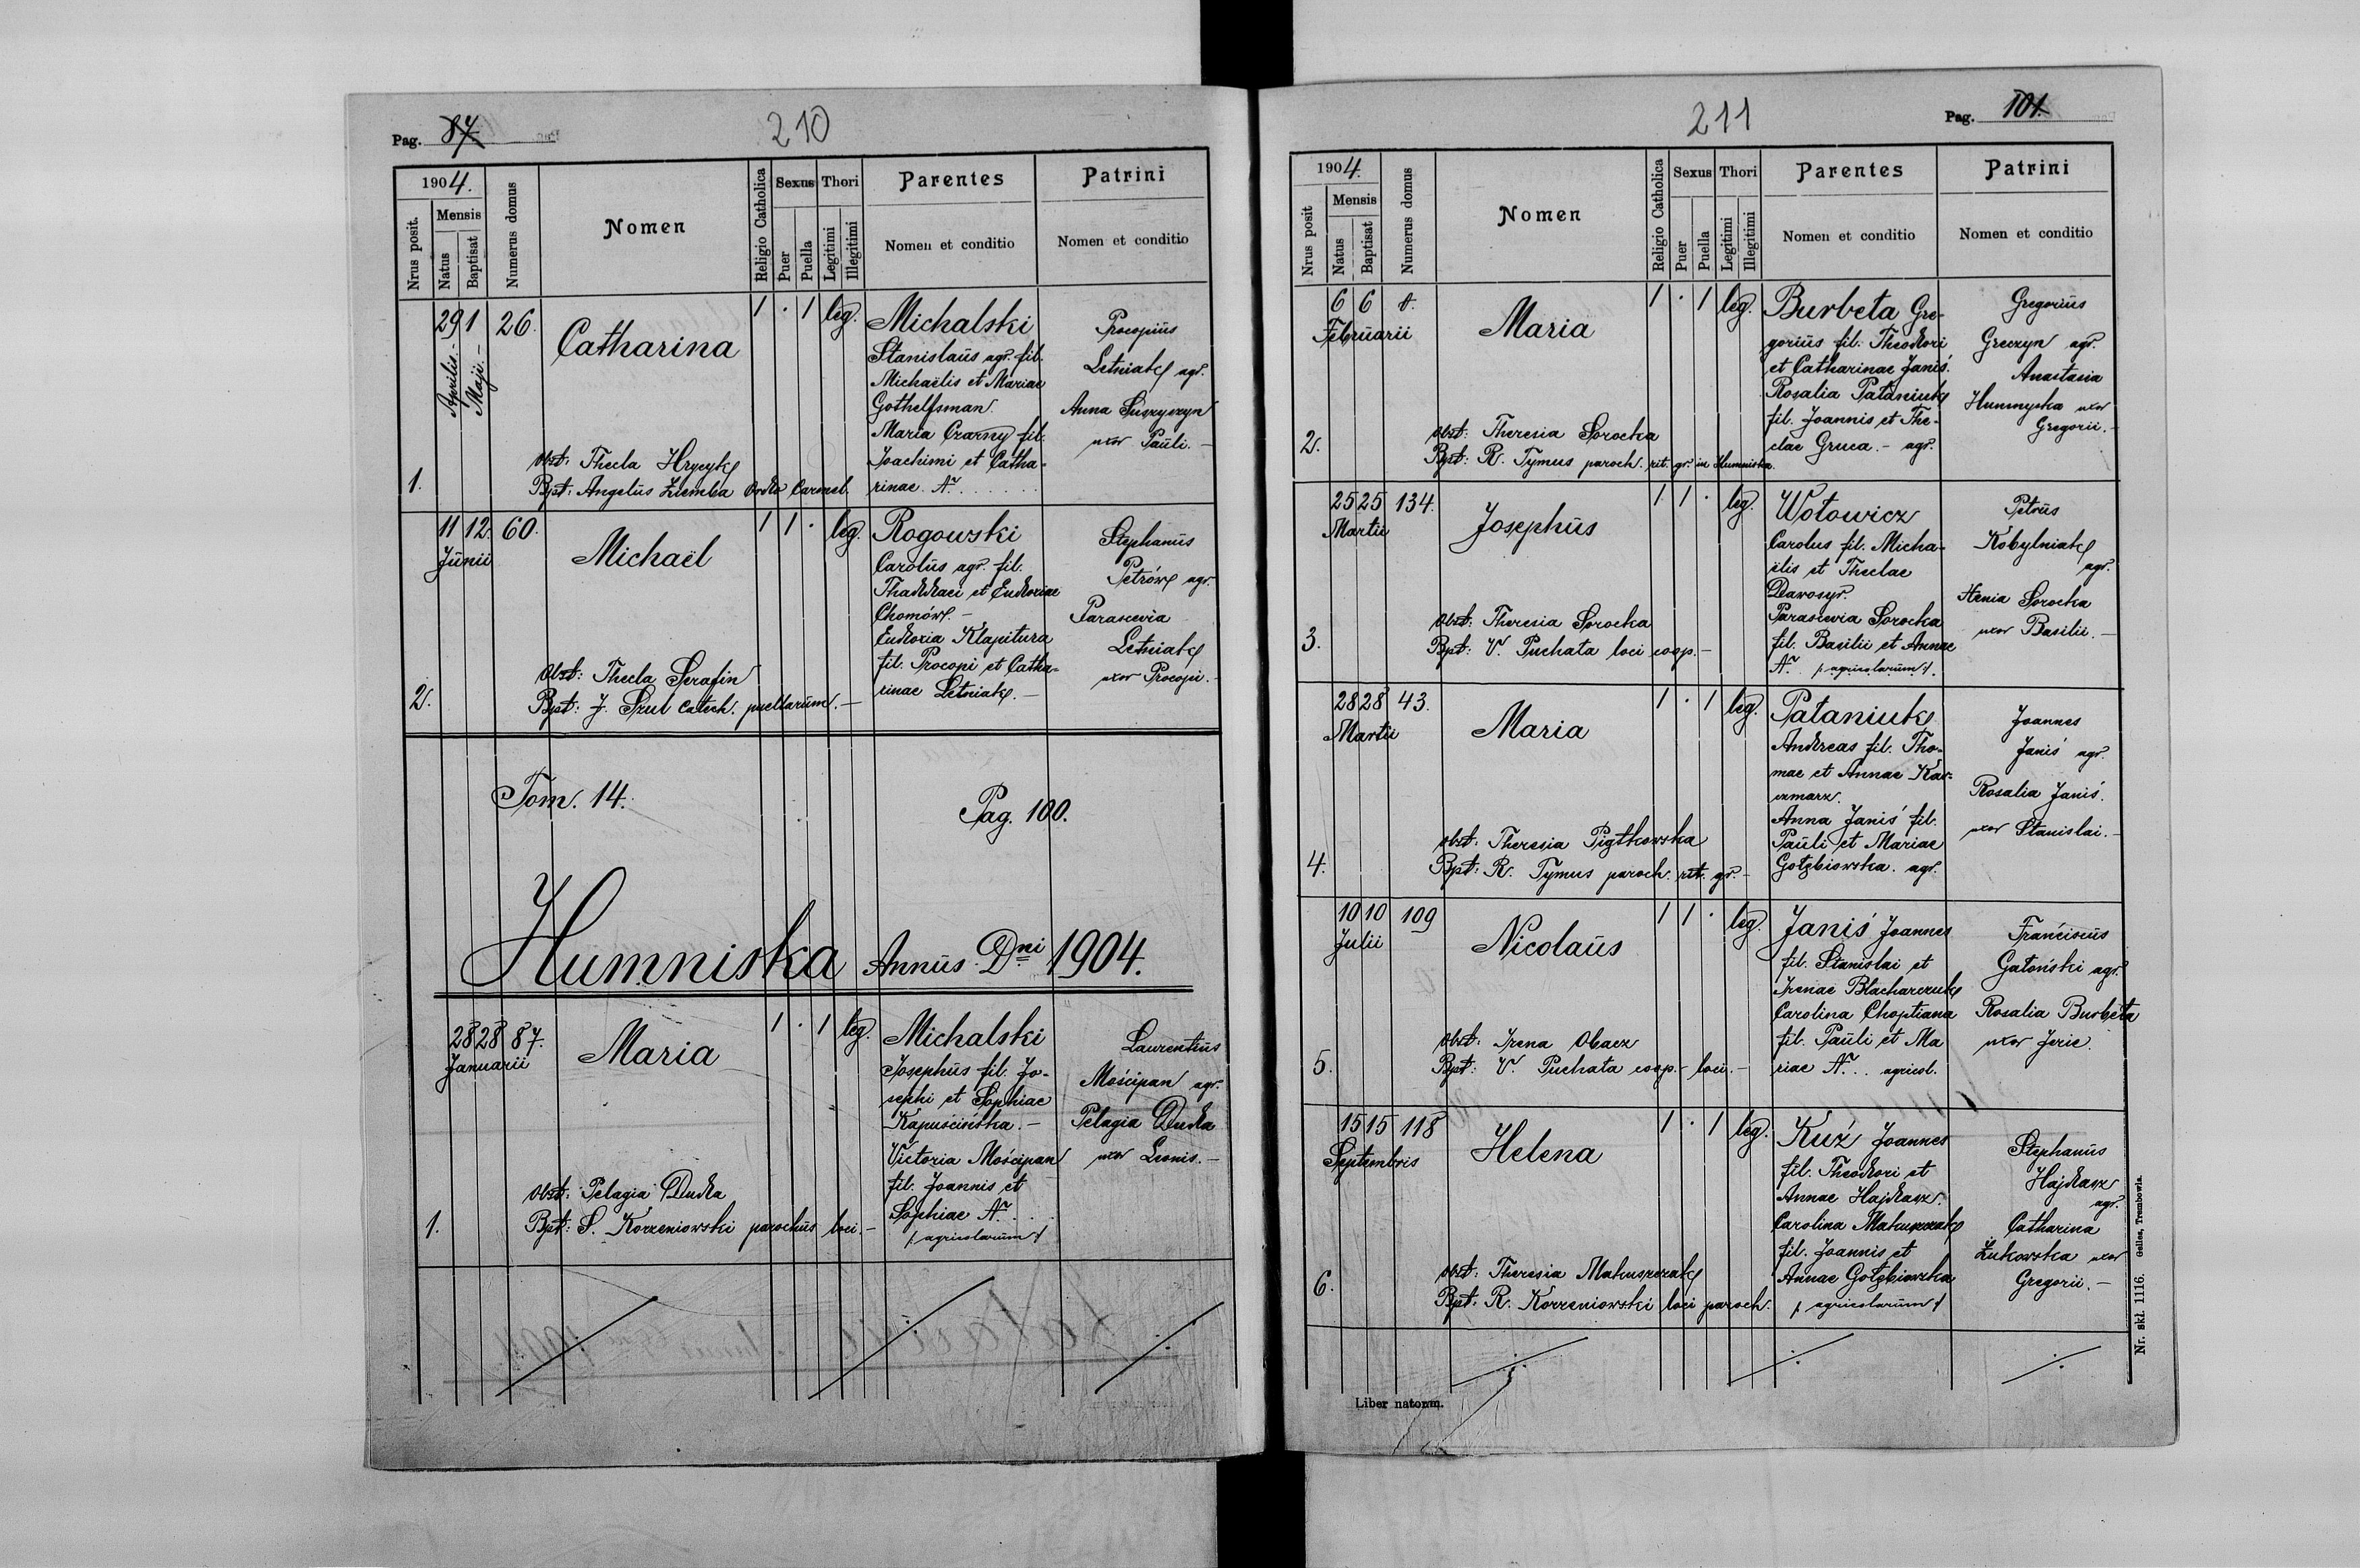 Pag. 87
210
1904.
Nrus posit.
Mensis
Natus
Baptisat
Numerus domus
Nomen
Religio Catholica
Sexus
Puer
Puella
Thori
Legitimi
Illegitimi
Parentes
Nomen et conditio
Patrini
Nomen et conditio
1.
29 1 26.
Aprilis.-
Maji.-
Catharina
1 · 1 leg.
Obst: Thecla Hrycyk
Bpt: Angelus Ziemba Ordo Carmel.
Michalski
Stanislaus agr. fil.
Michaëlis et Mariae
Gothelfsman.
Maria Czarny fil.
Joachimi et Catha-
rinae N.......
Procopius
Letniak agr.
Anna Suszyczyn
uxor Pauli.-
2.
11 12. 60.
Junii
Michaël
1 1 · leg.
Obst: Thecla Serafin
Bpt: J. Szul Catech. puellarum.-
Rogowski
Carolus agr. fil.
Thaddaei et Eudoxiae
Chomów.-
Eudoxia Klapitura
fil. Procopi et Catha-
rinae Letniak.-
Stephanus
Petrów agr.
Parascevia
Letniak
uxor Procopi.-
Tom. 14.
Pag. 100.
Humniska Annus Dni 1904.
1.
28 28 87.
Januarii
Maria
1 · 1 leg.
Obst: Pelagia Dudka
Bpt: S. Korzeniowski parochus loci.-
Michalski
Josephus fil. Jo-
sephi et Sophiae
Kapuścińska.-
Victoria Mościpan
fil. Joannis et
Sophiae N....
/:agricolarum:/
Laurentius
Mościpan agr.
Pelagia Dudka
uxor Leonis.-
211
Pag. 101.
1904.
Nrus posit
Mensis
Natus
Baptisat
Numerus domus
Nomen
Religio Catholica
Sexus
Puer
Puella
Thori
Legitimi
Illegitimi
Parentes
Nomen et conditio
Patrini
Nomen et conditio
2.
6 6
Februarii
Maria
1 · 1 leg.
Obst: Theresia Sorocka
Bpt: R. Tymus paroch. rit. gr. in Humniska.
Burbeta Gre-
gorius fil. Theodori
et Catharinae Janiś.
Rosalia Pataniuk
fil. Joannis et The-
clae Gruca.- agr.
Gregorius
Greczyn agr.
Anastasia
Humnyska uxor
Gregorii.-
3.
25 25 134.
Martii
Josephus
1 1 · leg.
Obst: Theresia Sorocka
Bpt: V. Puchata loci coop.-
Wotowicz
Carolus fil. Micha-
ëlis et Theclae
Dawosyr.
Parascevia Sorocka
fil. Basilii et Annae
N. /:agricolarum:/.
Petrus
Kobylniak
agr.
Xenia Sorocka
uxor Basilii.-
4.
28 28 43.
Martii
Maria
1 · 1 leg.
Obst: Theresia Piątkowska
Bpt: R. Tymus paroch. rit. gr.-
Pataniuk
Andreas fil. Tho-
mae et Annae Kar-
czmarz.
Anna Janiś fil.
Pauli et Mariae
Gołębiowska. agr.
Joannes
Janiś agr.
Rosalia Janiś.
uxor Stanislai.-
5.
10 10 109
Julii
Nicolaus
1 1 · leg.
Obst: Irena Obacz
Bpt: V. Puchata coop.- loci.-
Janiś Joannes
fil. Stanislai et
Irenae Blacharczuk
Carolina Choptiana
fil. Pauli et Ma
riae N... agricol.
Franciscus
Gatoński agr.
Rosalia Burbeta
uxor Jerie.
6.
15 15 118
Septembris
Helena
1 · 1 leg.
Obst: Theresia Makuszczak
Bpt: R. Korzeniowski loci paroch.
Kuź Joannes
fil. Theodori et
Annae Hajdasz.
Carolina Makuszczak
fil. Joannis et
Annae Gołębiowska
/:agricolarum:/
Stephanus
Hajdasz
agr.
Catharina
Żukowska uxor
Gregorii.-
Liber natorum.
Nr. skł. 1116. Galles, Trembowla.